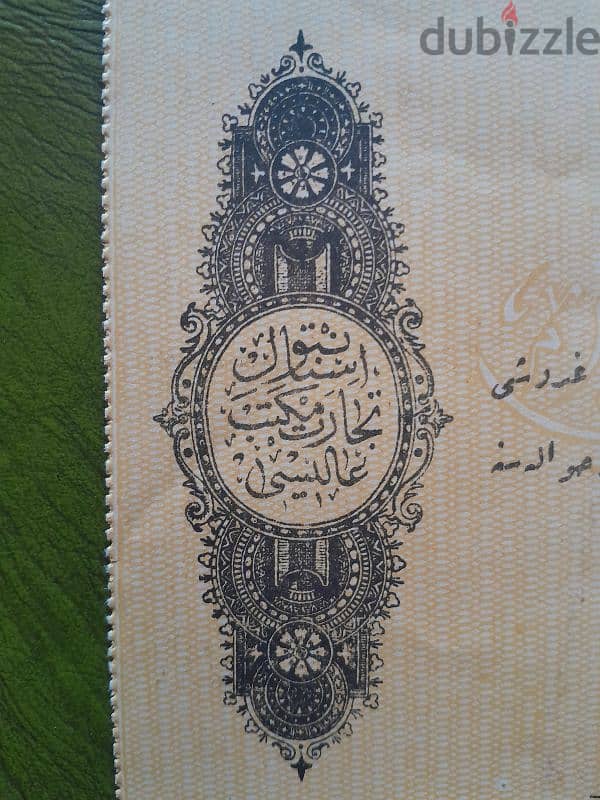 dubizzle
استانبول
تجارت مكتب
عاليسى
غروشى
حواله سنه